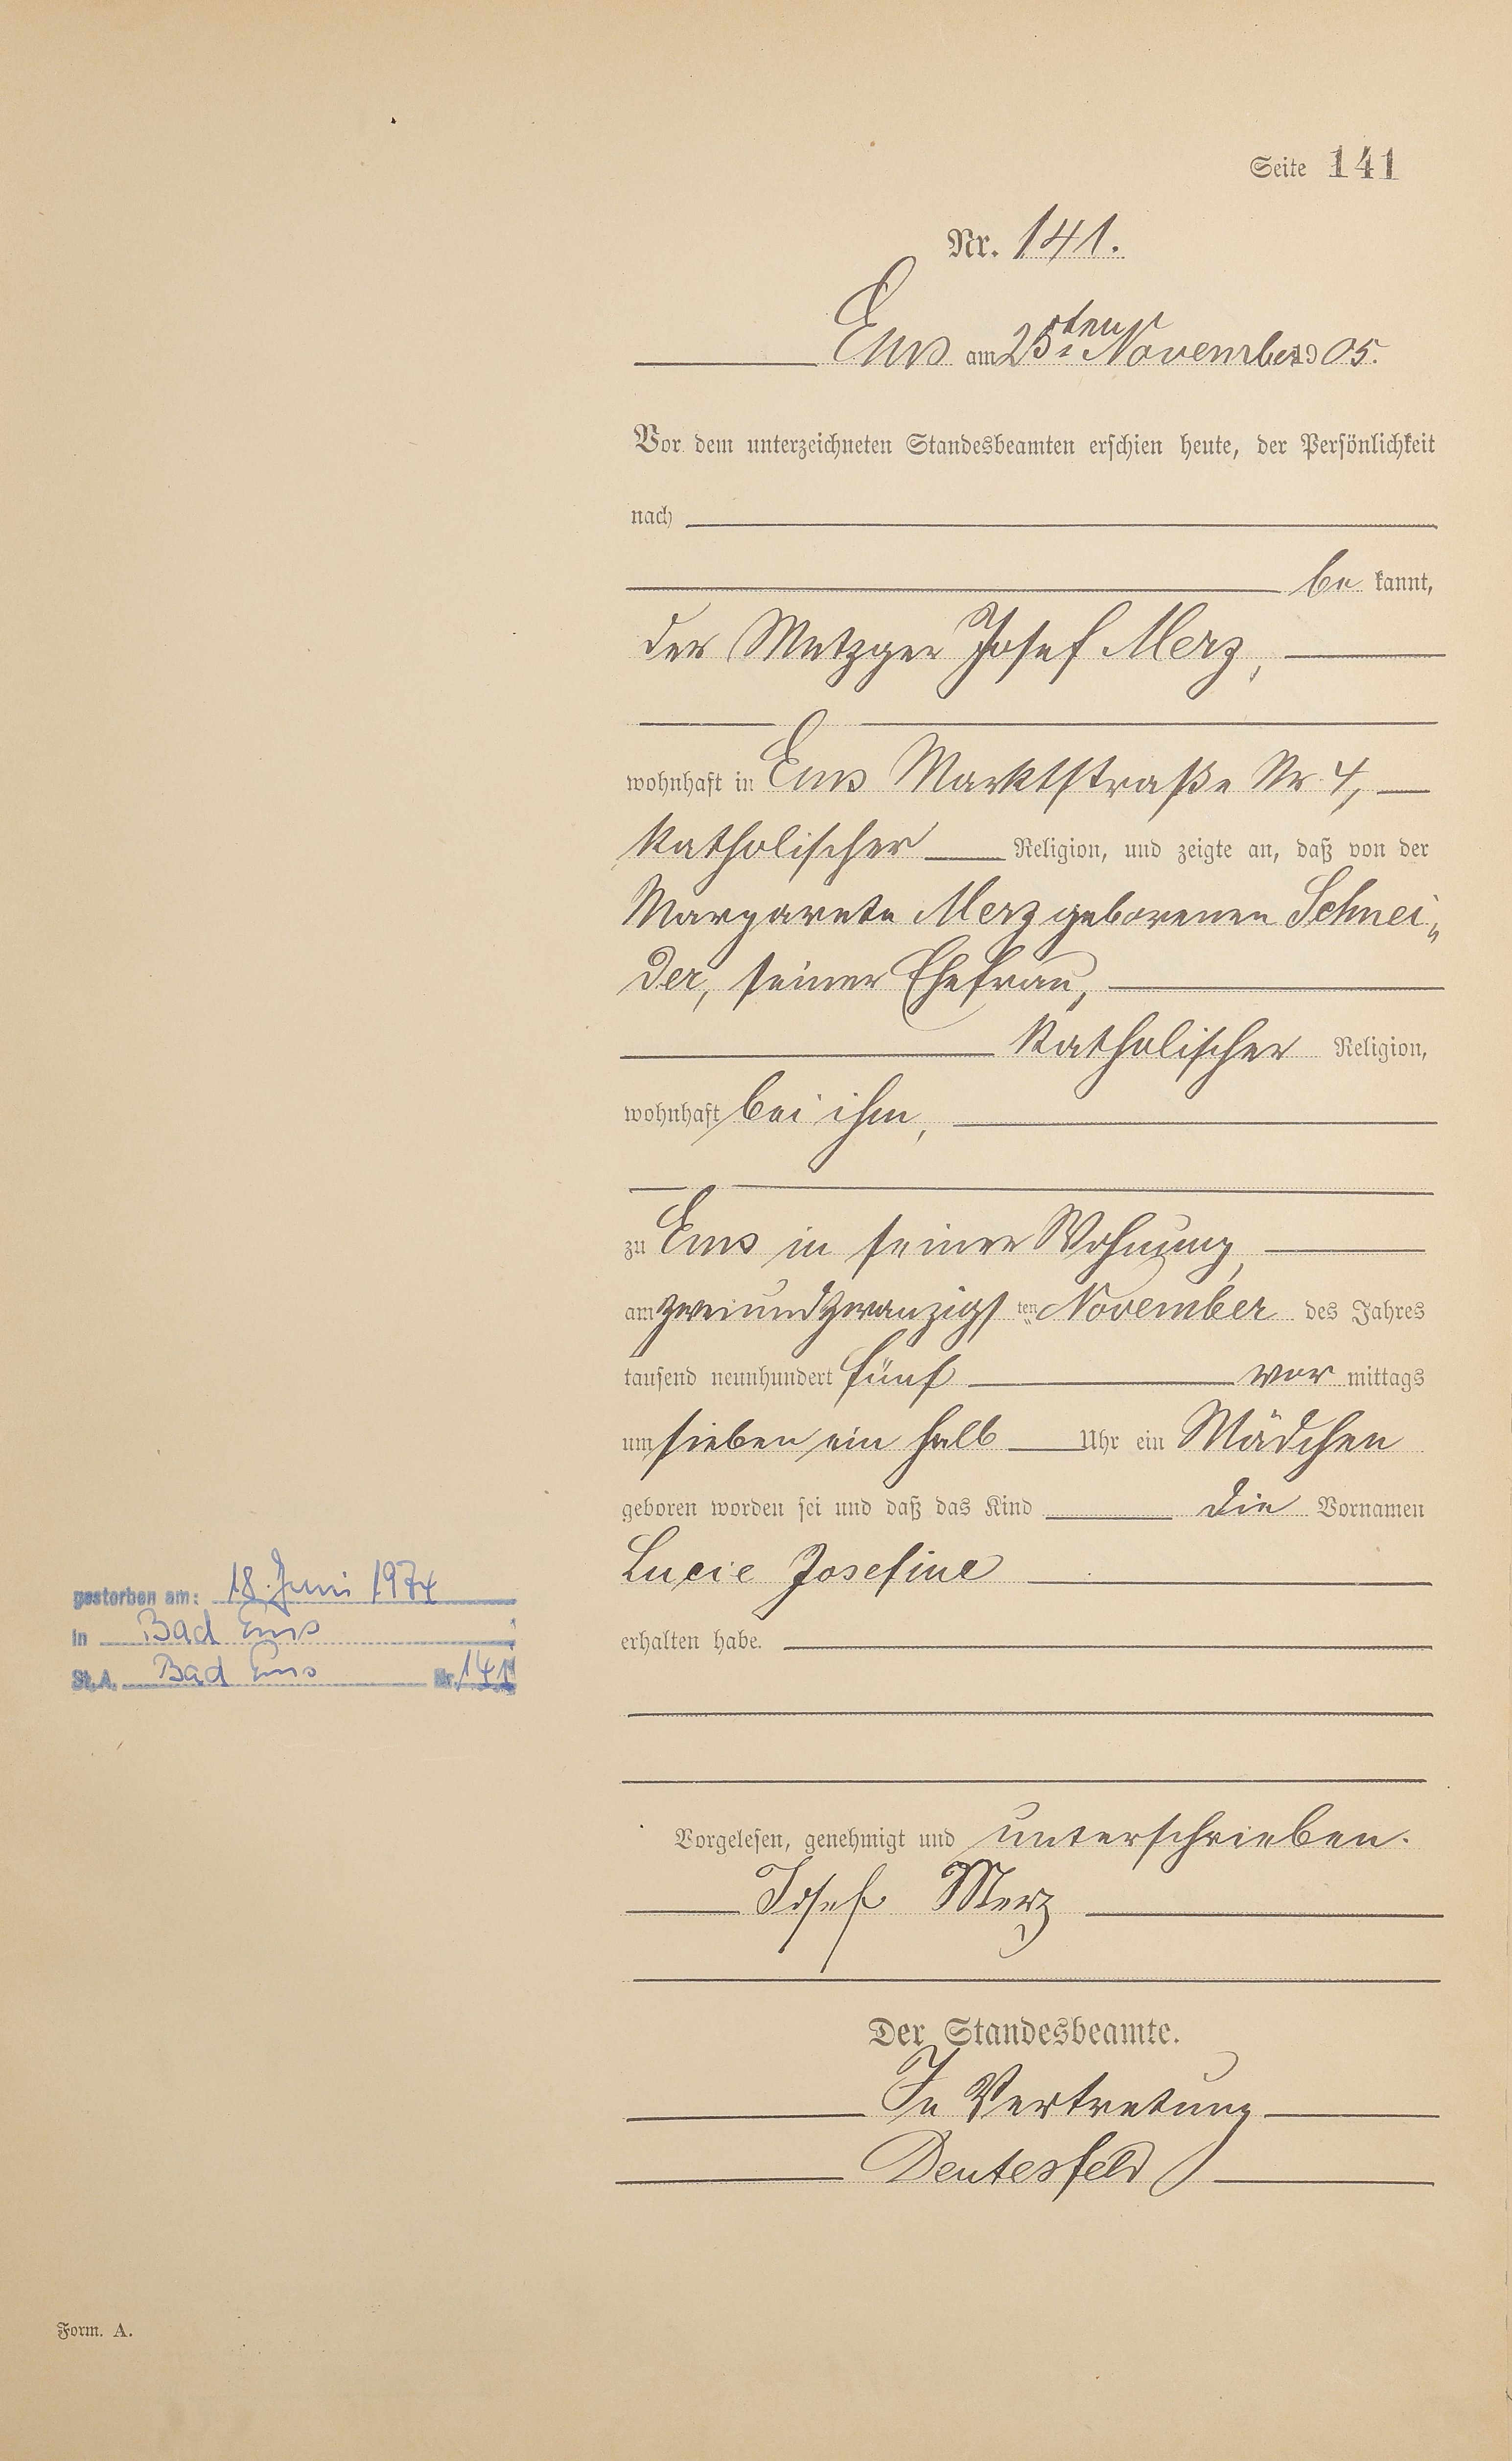 Seite 141
Nr. 141.
Ems am 25ten November 1905.
Vor dem unterzeichneten Standesbeamten erschien heute, der Persönlichkeit
nach
be kannt,
der Metzger Josef Merz,
wohnhaft in Ems Marktstraße Nr. 4,
katholischer Religion, und zeigte an, daß von der
Margareta Merz geborenen Schnei„
der, seiner Ehefrau,
katholischer Religion,
wohnhaft bei ihm,
zu Ems in seiner Wohnung,
am zweiundzwanzigs ten November des Jahres
tausend neunhundert fünf vor mittags
um sieben ein halb Uhr ein Mädchen
geboren worden sei und daß das Kind die Vornamen
Lucie Josefine
erhalten habe.
gestorben am: 18. Juni 1974
in Bad Ems
St.A. Bad Ems Nr. 141
Vorgelesen, genehmigt und unterschrieben.
Josef Merz
Der Standesbeamte.
In Vertretung
Deutesfeld
Form. A.